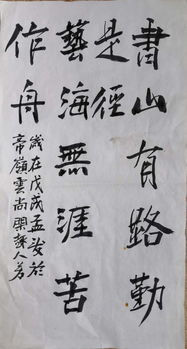 書山有路勤
是徑
藝海無涯苦
作舟
歲在戊戌孟於
帝嶺雲尚人書